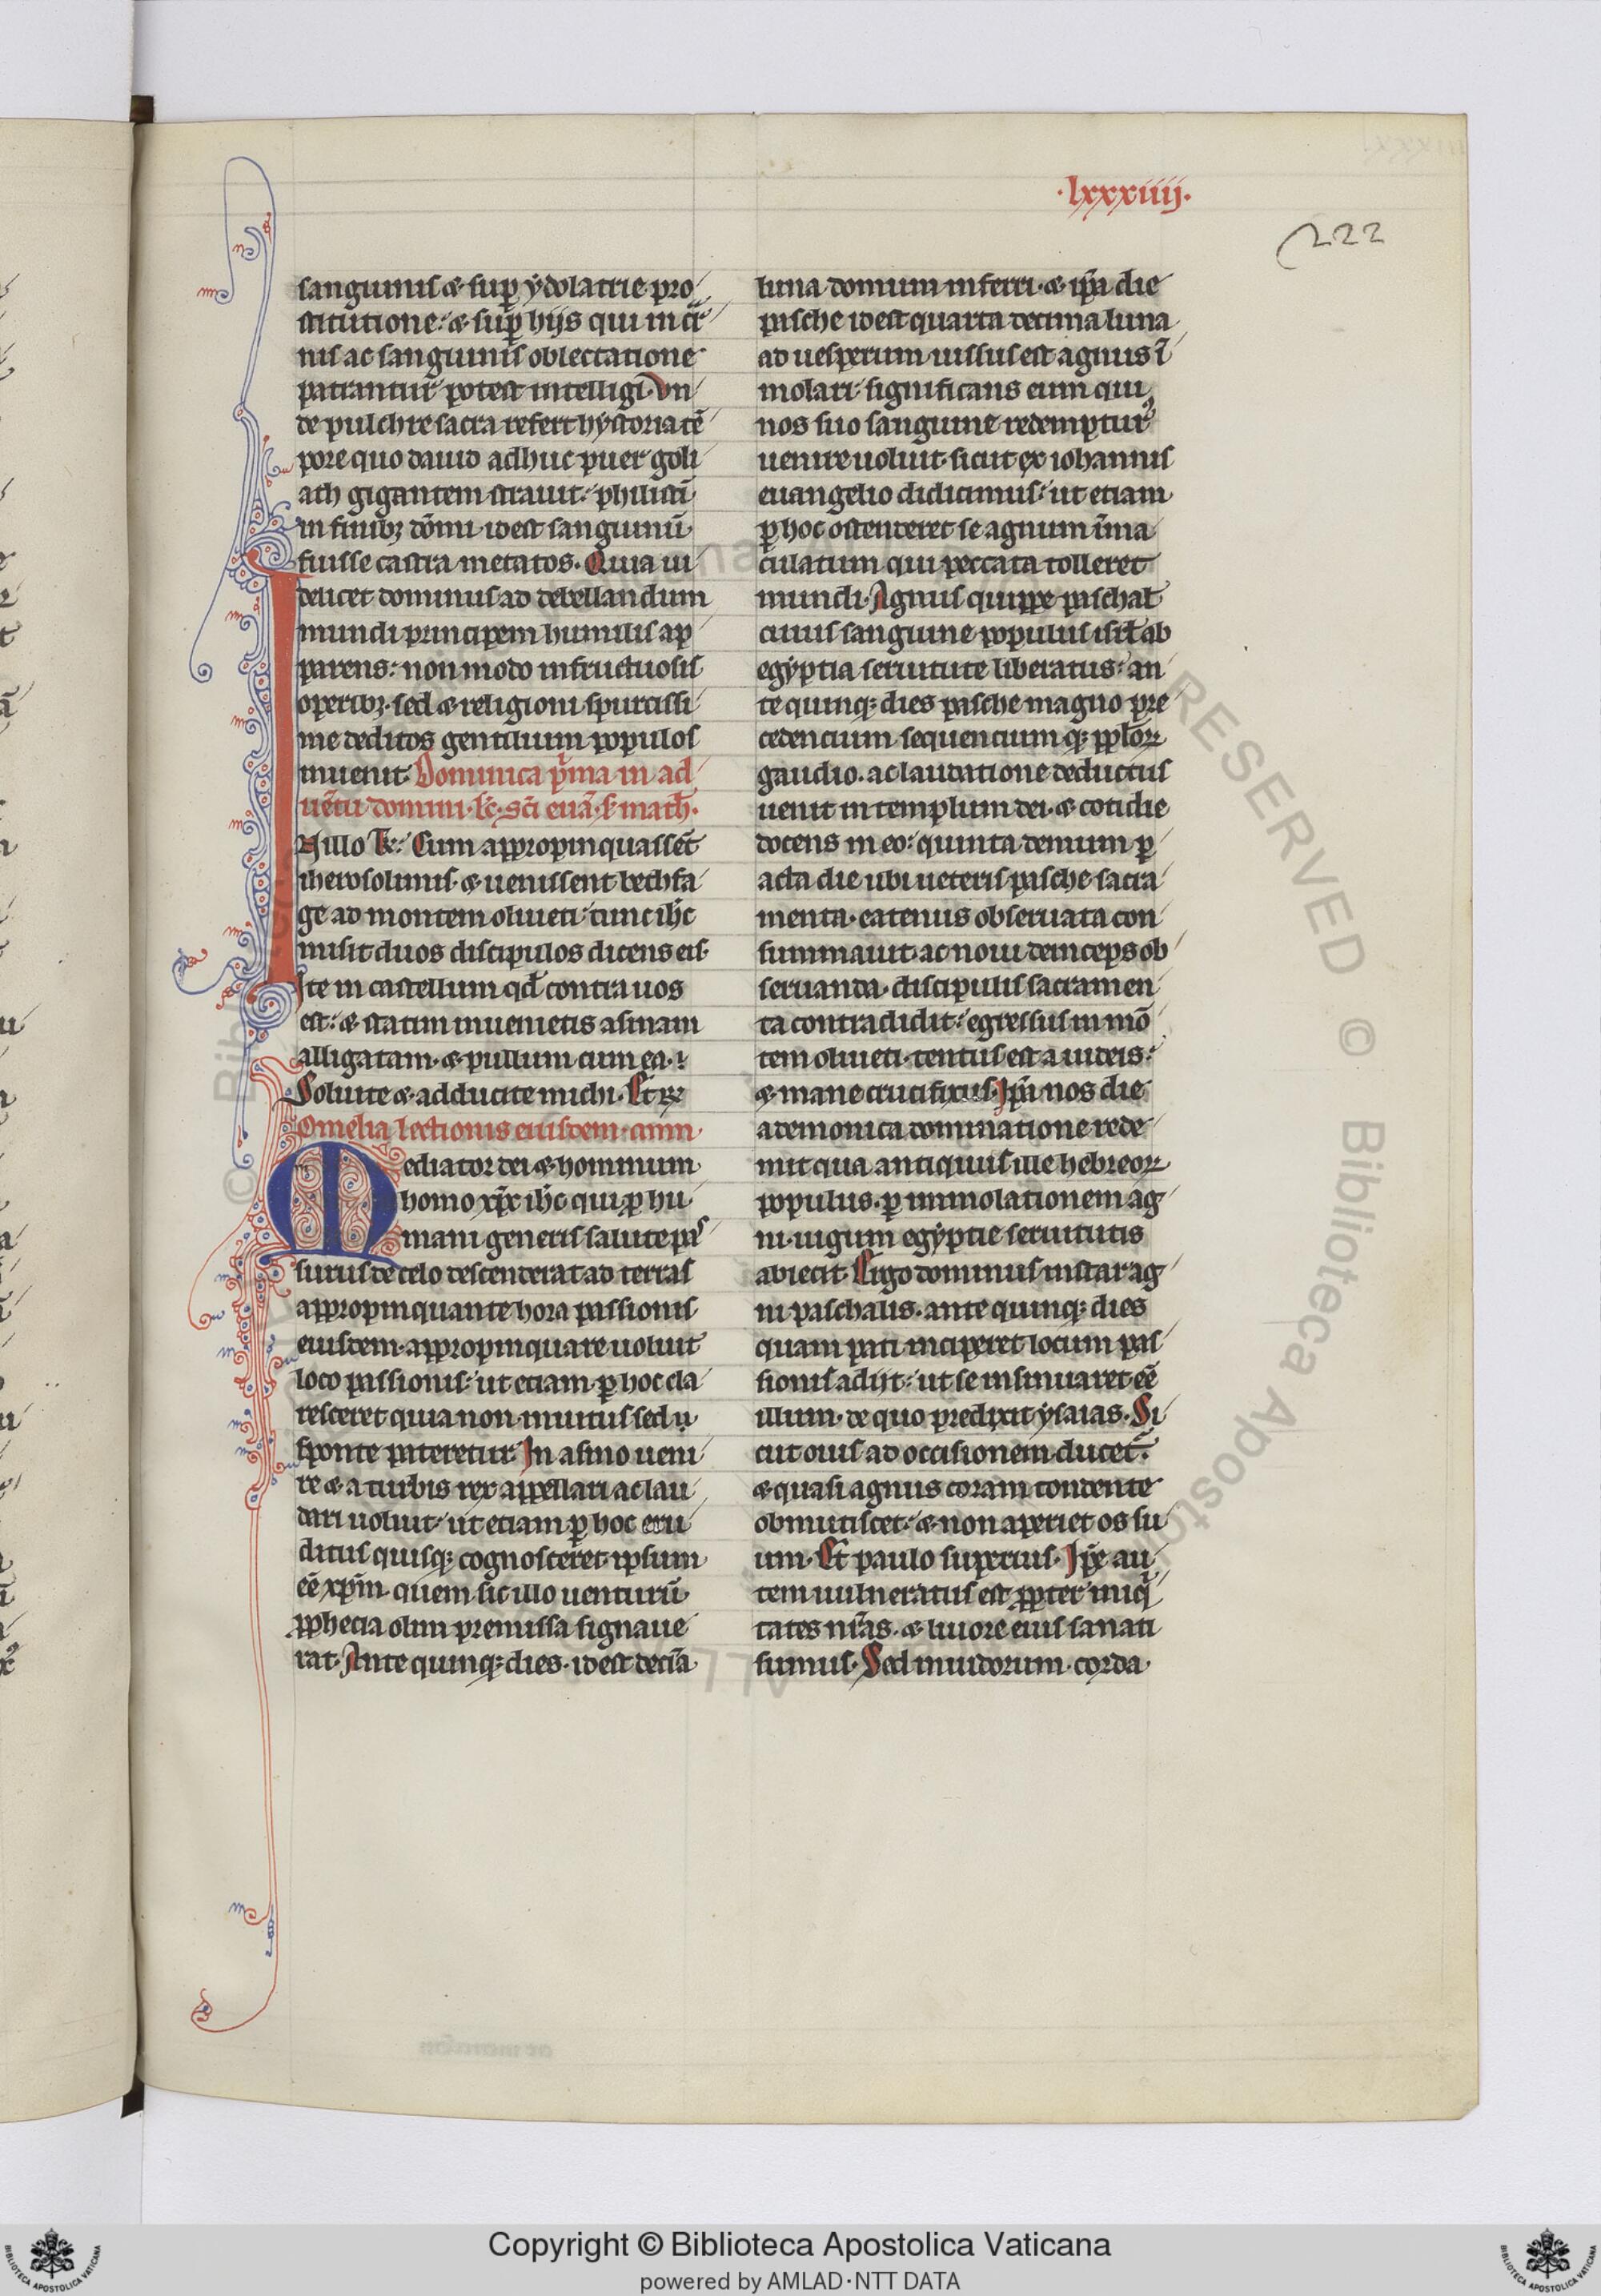 ·lxxxiiij·
222
sanguinis & sup̱ ydolatrie pro
stitutione: & sup̱ hijs qui in cr̄
nis ac sanguinis oblectatione
patrantur potest intelligi. Vn
de pulchre sacra refert hystoria tē
pore quo dauid adhuc puer goli
ath gigantem strauit: philisti
in finibꝫ dōmi idest sanguinū
fuisse castra metatos. Quia ui
delicet dominus ad debellandum
mundi principem humilis ap
parens: non modo infructuosis
operibꝫ. sed & religioni spurcissi
me deditos gentilium populos
inuenit. Dominica pͥma in ad
uētu domini. lc̄. sc̄i euā. s̄ math̄.
IN illo tꝑ̄: Cum appropinquasset
iherosolimis. & uenissent bethfa
ge ad montem oliueti: tunc ih̄c
misit duos discipulos dicens eis.
Ite in castellum qd̄ contra uos
est: & statim inuenietis asinam
alligatam. & pullum cum ea.
Soluite & adducite michi. Et rꝫ
Omelia lectionis eiusdem. cum
Mediator dei & hominum
homo xp̄c ih̄c qui ꝓ hu
mani generis salute pas
surus de celo descenderat ad terras
appropinquante hora passionis
eiusdem. appropinquare uoluit
loco passionis: ut etiam ꝑ hoc cla
resceret quia non inuitus sed
sponte pateretur. In asino ueni
re & a turbis rex appellari ac lau
dari uoluit: ut etiam ꝑ hoc eru
ditus quisqꝫ cognosceret ipsum
eē xp̄m. quem sic illo uenturū
ꝓphecia olim premissa signaue
rat. Ante quinqꝫ dies. idest decīa
luna domum inferri. & ip̄a die
pasche idest quarta decima luna
ad uesperum iussus est agnus ī
molari: significans eum qui
nos suo sanguine redempturꝰ
uenire uoluit. sicut ex iohannis
euangelio didicimus: ut etiam
ꝑ hoc ostenderet se agnum īma
culatum qui peccata tolleret
mundi. Agnus quippe paschal̄
cuius sanguine populus isrl̄ ab
egyptia seruitute liberatus: an
te quinqꝫ dies pasche magno pre
cedencium sequenciumqꝫ ppl̄oꝝ
gaudio. ac laudatione deductus
uenit in templum dei. & cotidie
docens in eo: quinta demum ꝑ
acta die ubi ueteris pasche sacra
menta. eatenus obseruata con
summauit: ac noui deinceps ob
seruanda. discipulis sacramen
ta contradidit: egressus in mō
tem oliueti. tentus est a iudeis:
& mane crucifixus. Ip̄a nos die
a demonica dominatione rede
mit qua antiquus ille hebreoꝝ
populus. ꝑ immolationem ag
ni. iugum egyptie seruitutis
abiecit. Ergo dominus instar ag
ni paschalis. ante quinqꝫ dies
quam pati inciperet locum pas
sionis adijt: ut se insinuaret eē
illum. de quo predixit ysaias. Si
cut ouis ad occisionem ducet̄:
& quasi agnus coram tondente
obmutiscet: & non aperiet os su
um. Et paulo superius. Ip̄e au
tem uulneratus est ꝓpter iniqͥ
tates nr̄as. & liuore eius sanati
sumus. Sed inuidorum. corda
Copyright © Biblioteca Apostolica Vaticana
powered by AMLAD·NTT DATA